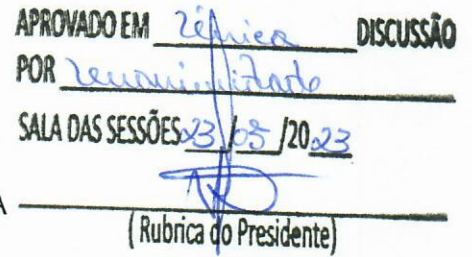 APROVADO EM única DISCUSSÃO
POR unanimidade
SALA DAS SESSÕES 23/05/2023
A
(Rubrica do Presidente)